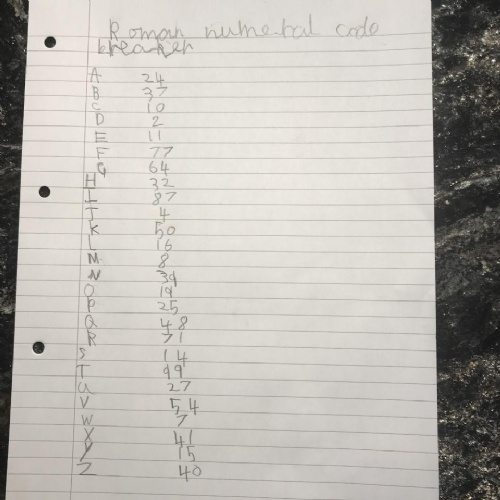 Roman numeral code
breaker
A 24
B 37
C 10
D 2
E 11
F 77
G 64
H 32
I 87
J 4
K 50
L 16
M 8
N 39
O 19
P 25
Q 48
R 71
S 14
T 99
U 27
V 54
W 7
X 41
Y 15
Z 40